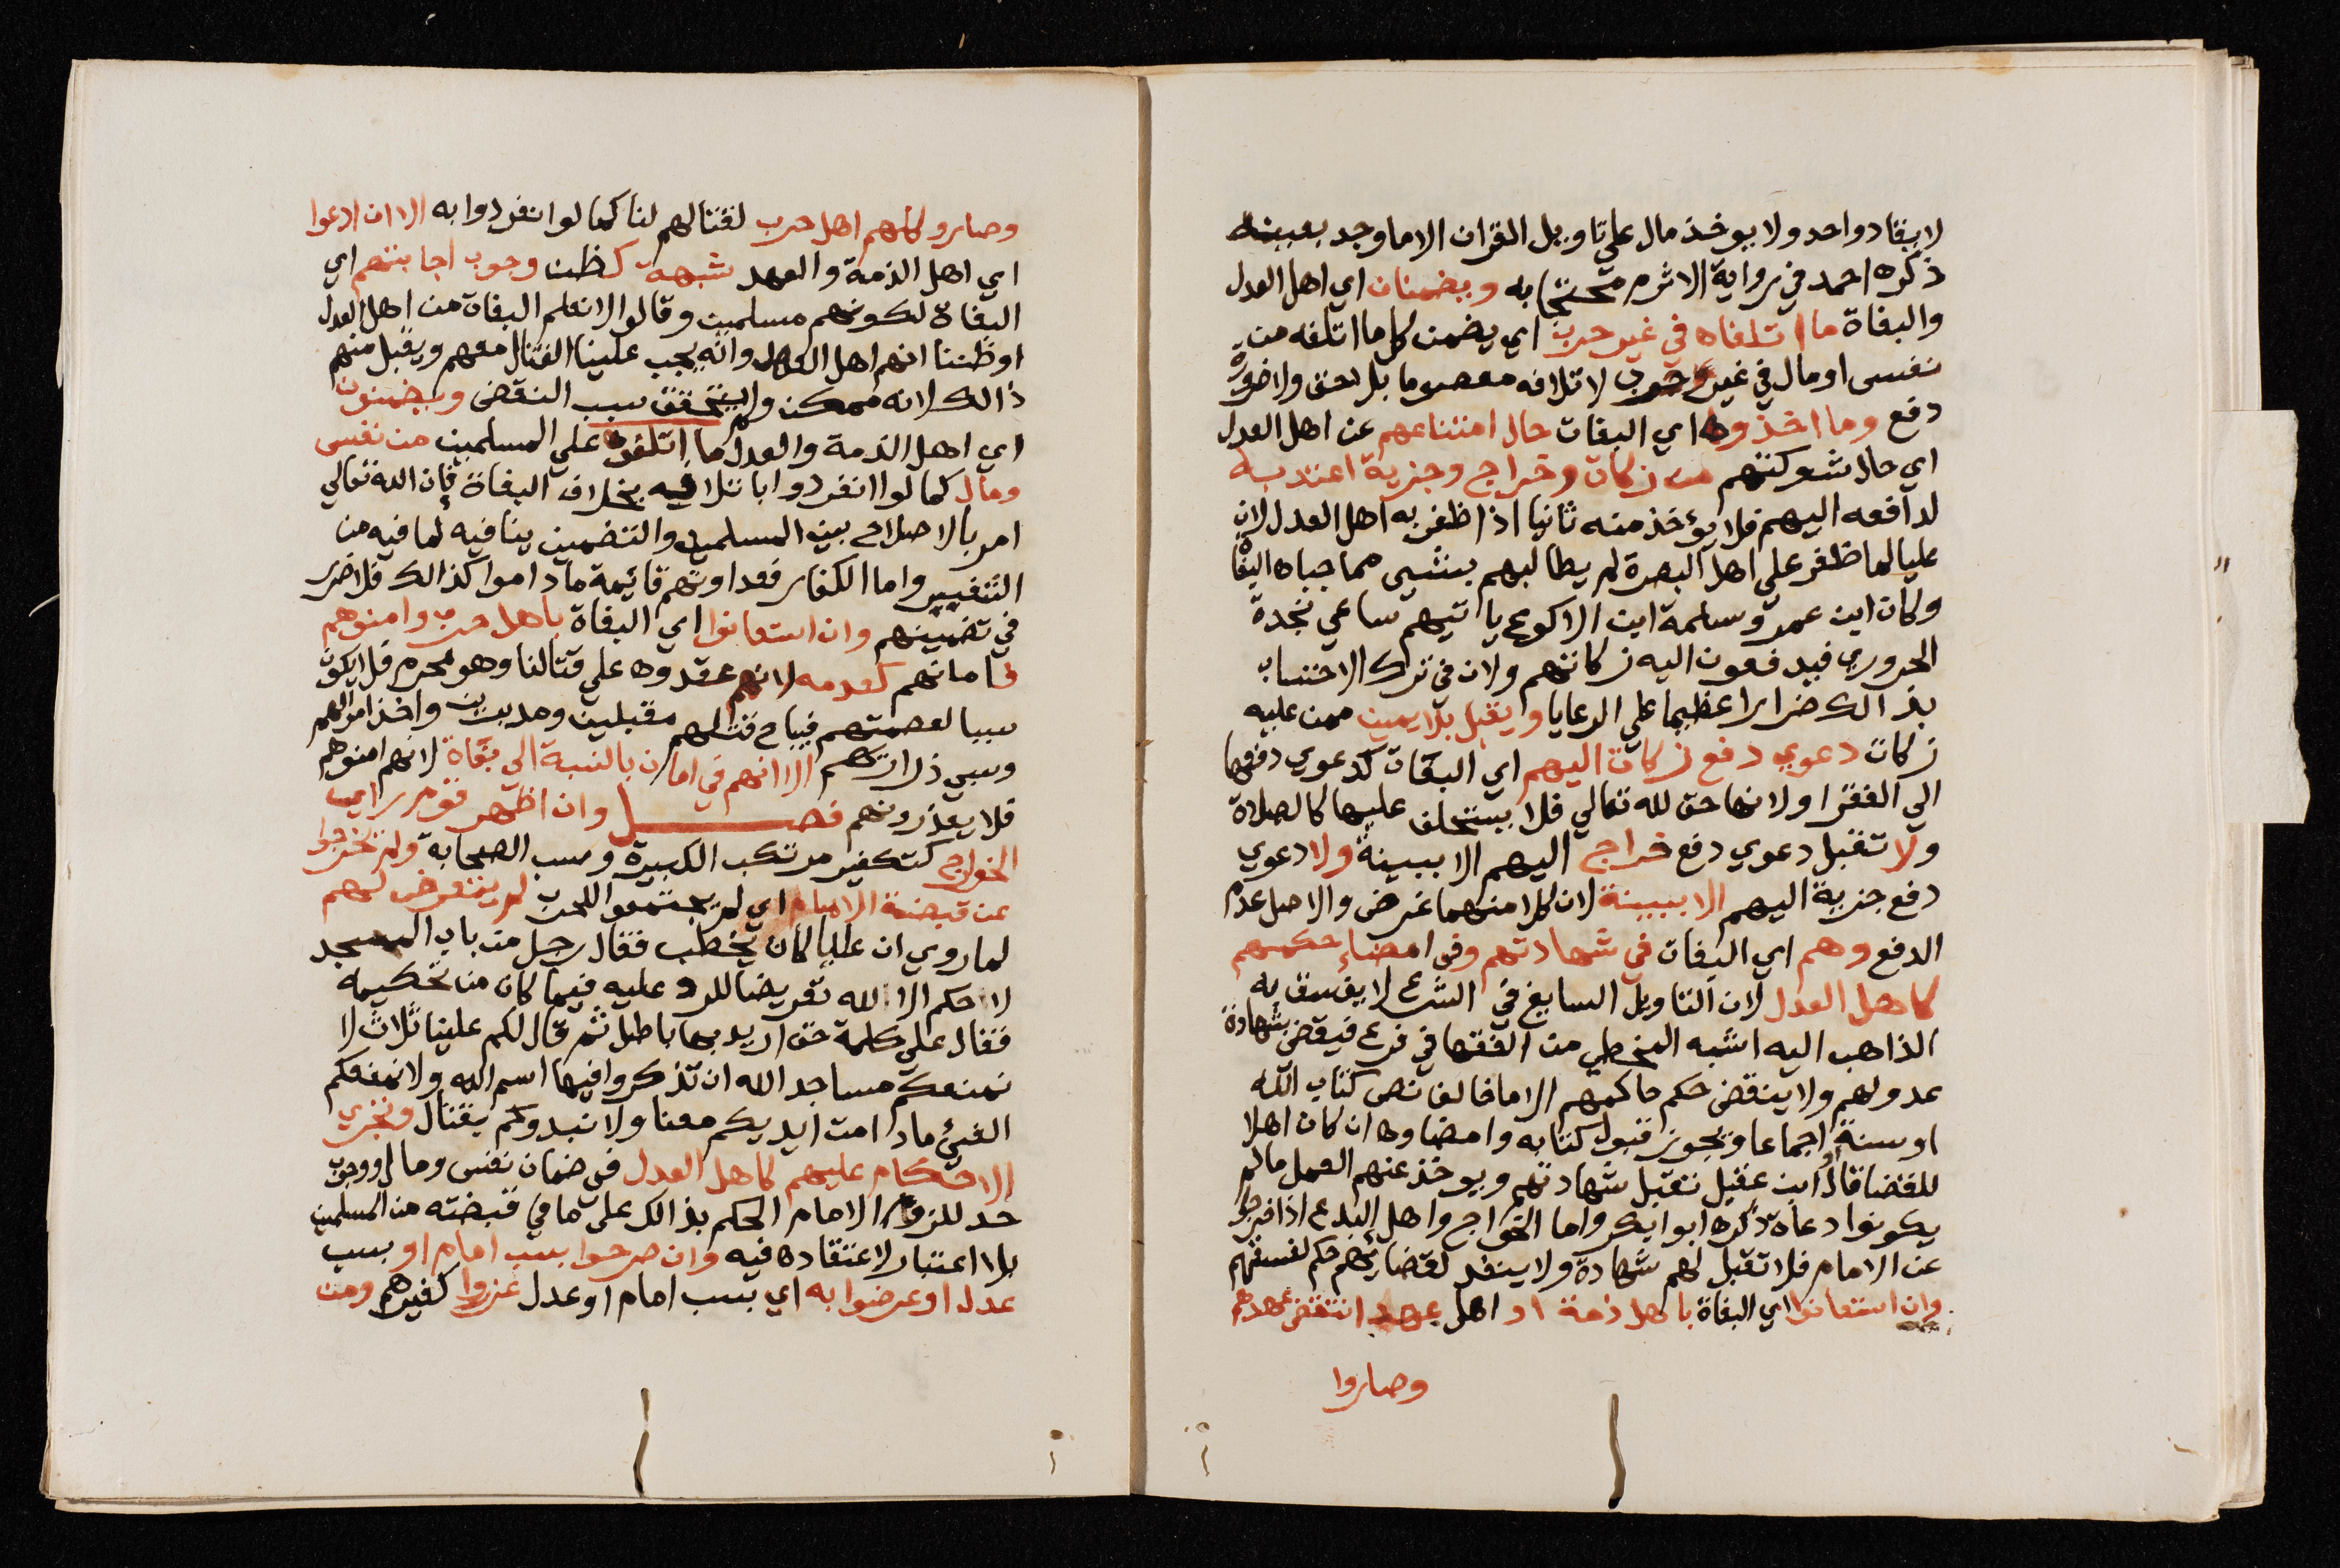 لا يقاد واحد ولا يوخذ مال علي تاويل القران الا ما وجد بعينه
ذكره احمد في رواية الاثرم محتجا به ويضمنان اي اهل العدل
والبغاة ما اتلفاه في غير حرب اي يضمن كل ما اتلفه من
نفس او مال في غير حرب لاتلافه معصوما بلا حق ولا ضرورة
دفع وما اخذوه اي البغات حال امتناعهم عن اهل العدل
اي حال شوكتهم من زكات وخراج وجزية اعتد به
لدافعه اليهم فلا يؤخذ منه ثانيا اذا ظفر به اهل العدل لان
عليا لما ظفر علي اهل البصرة لم يطالبهم بشيى مما جباه البغا
وكان ابن عمر وسلمة ابن الاكوع ياتيهم ساعي نجدة
الحروري فيدفعون اليه زكاتهم ولان في ترك الاحتساب
بذالك ضرارا عظيما علي الرعايا ويقبل بلا يمين ممن عليه
زكات دعوي دفع زكات اليهم اي البغات كدعوي دفعها
الي الفقرا ولانها حق لله تعالي فلا يستحلف عليها كالصلاة
ولا تقبل دعوي دفع خراج اليهم الا ببينة ولا دعوي
دفع جزية اليهم الا ببينة لان كلا منهما عوض والاصل عدم
الدفع وهم اي البغات في شهادتهم وفي امضاء حكمهم
كاهل العدل لان التاويل السايغ في الشرع لا يفسق به
الذاهب اليه اشبه المخطي من الفقها في فرع فيقضى بشهادة
عدولهم ولا ينقض حكم حاكمهم الا ما خالف نص كتاب الله
او سنة او اجماعا ويجوز قبول كتابه وامضاوه ان كان اهلا
للقضا قال ابن عقيل تقبل شهادتهم ويوخذ عنهم العمل ما لم
يكونوا دعاة ذكره ابوا بكر واما الخوارج واهل البدع اذا خرجوا
عن الامام فلا تقبل لهم شهادة ولا ينفذ لقضايهم حكم لفسقهم
وان استعانوا اي البغاة باهل ذمة او اهل عهد انتقض عهدهم
وصاروا
وصارو كلهم اهل حرب لقتالهم لنا كما لو انفردوا به الا ان ادعوا
اي اهل الذمة والعهد شبهة كظن وجوب اجابتهم اي
البغاة لكونهم مسلمين وقالوا لا نعلم البغاة من اهل العدل
او ظننا انهم اهل العدل وانه يجب علينا القتال معهم ويقبل منهم
ذالك لانه ممكن ولم يتحقق سبب النقض ويضمنون
اي اهل الذمة والعدل ما اتلفوه علي المسلمين من نفس
ومال كما لو انفردوا باتلافه بخلاف البغاة فإن الله تعالي
امر بالاصلاح بين المسلمين والتضمين ينافيه لما فيه من
التنفيير واما الكفار فعداوتهم قائيمة ما داموا كذالك فلا ضرر
في تضمينهم وان استعانوا اي البغاة باهل حرب وامنوهم
فامانهم كعدمه لانهم عقدوه علي قتالنا وهو محرم فلا يكون
سببا لعصمتهم فيباح قتلهم مقبلين ومدبرين واخذ اموالهم
وسبي ذراريهم الا انهم في امان بالنسبة الي بغاة لانهم امنوهم
فلا يغدرونهم فصل وان اظهر قوم راي
الخوارج كتكفير مرتكب الكبيرة وسب الصحابة ولم يخرجوا
عن قبضة الامام اي لم يجتمعوا للحرب لم يتعرض لهم
لما روي ان عليا كان يخطب فقال رجل من باب المسجد
لا حكم الا لله تعريضا للرد عليه فيما كان من تحكيمه
فقال علي كلمة حق اريد بها باطل ثم قال لكم علينا ثلاث لا
نمنعكم مساجد الله ان تذكروا فيها اسم الله ولا نمنعكم
الفيئ ما دامت ايديكم معنا ولا نبدوكم بقتال وتجري
الاحكام عليهم كاهل العدل في ضمان نفس ومال ووجوب
حد للزوم الامام الحكم بذالك على ما في قبضته من المسلمين
بلا اعتبار لاعتقاده فيه وان صرحوا بسب امام او بسب
عدل او عرضوا به اي بسب امام او عدل عزروا كغيرهم ومن